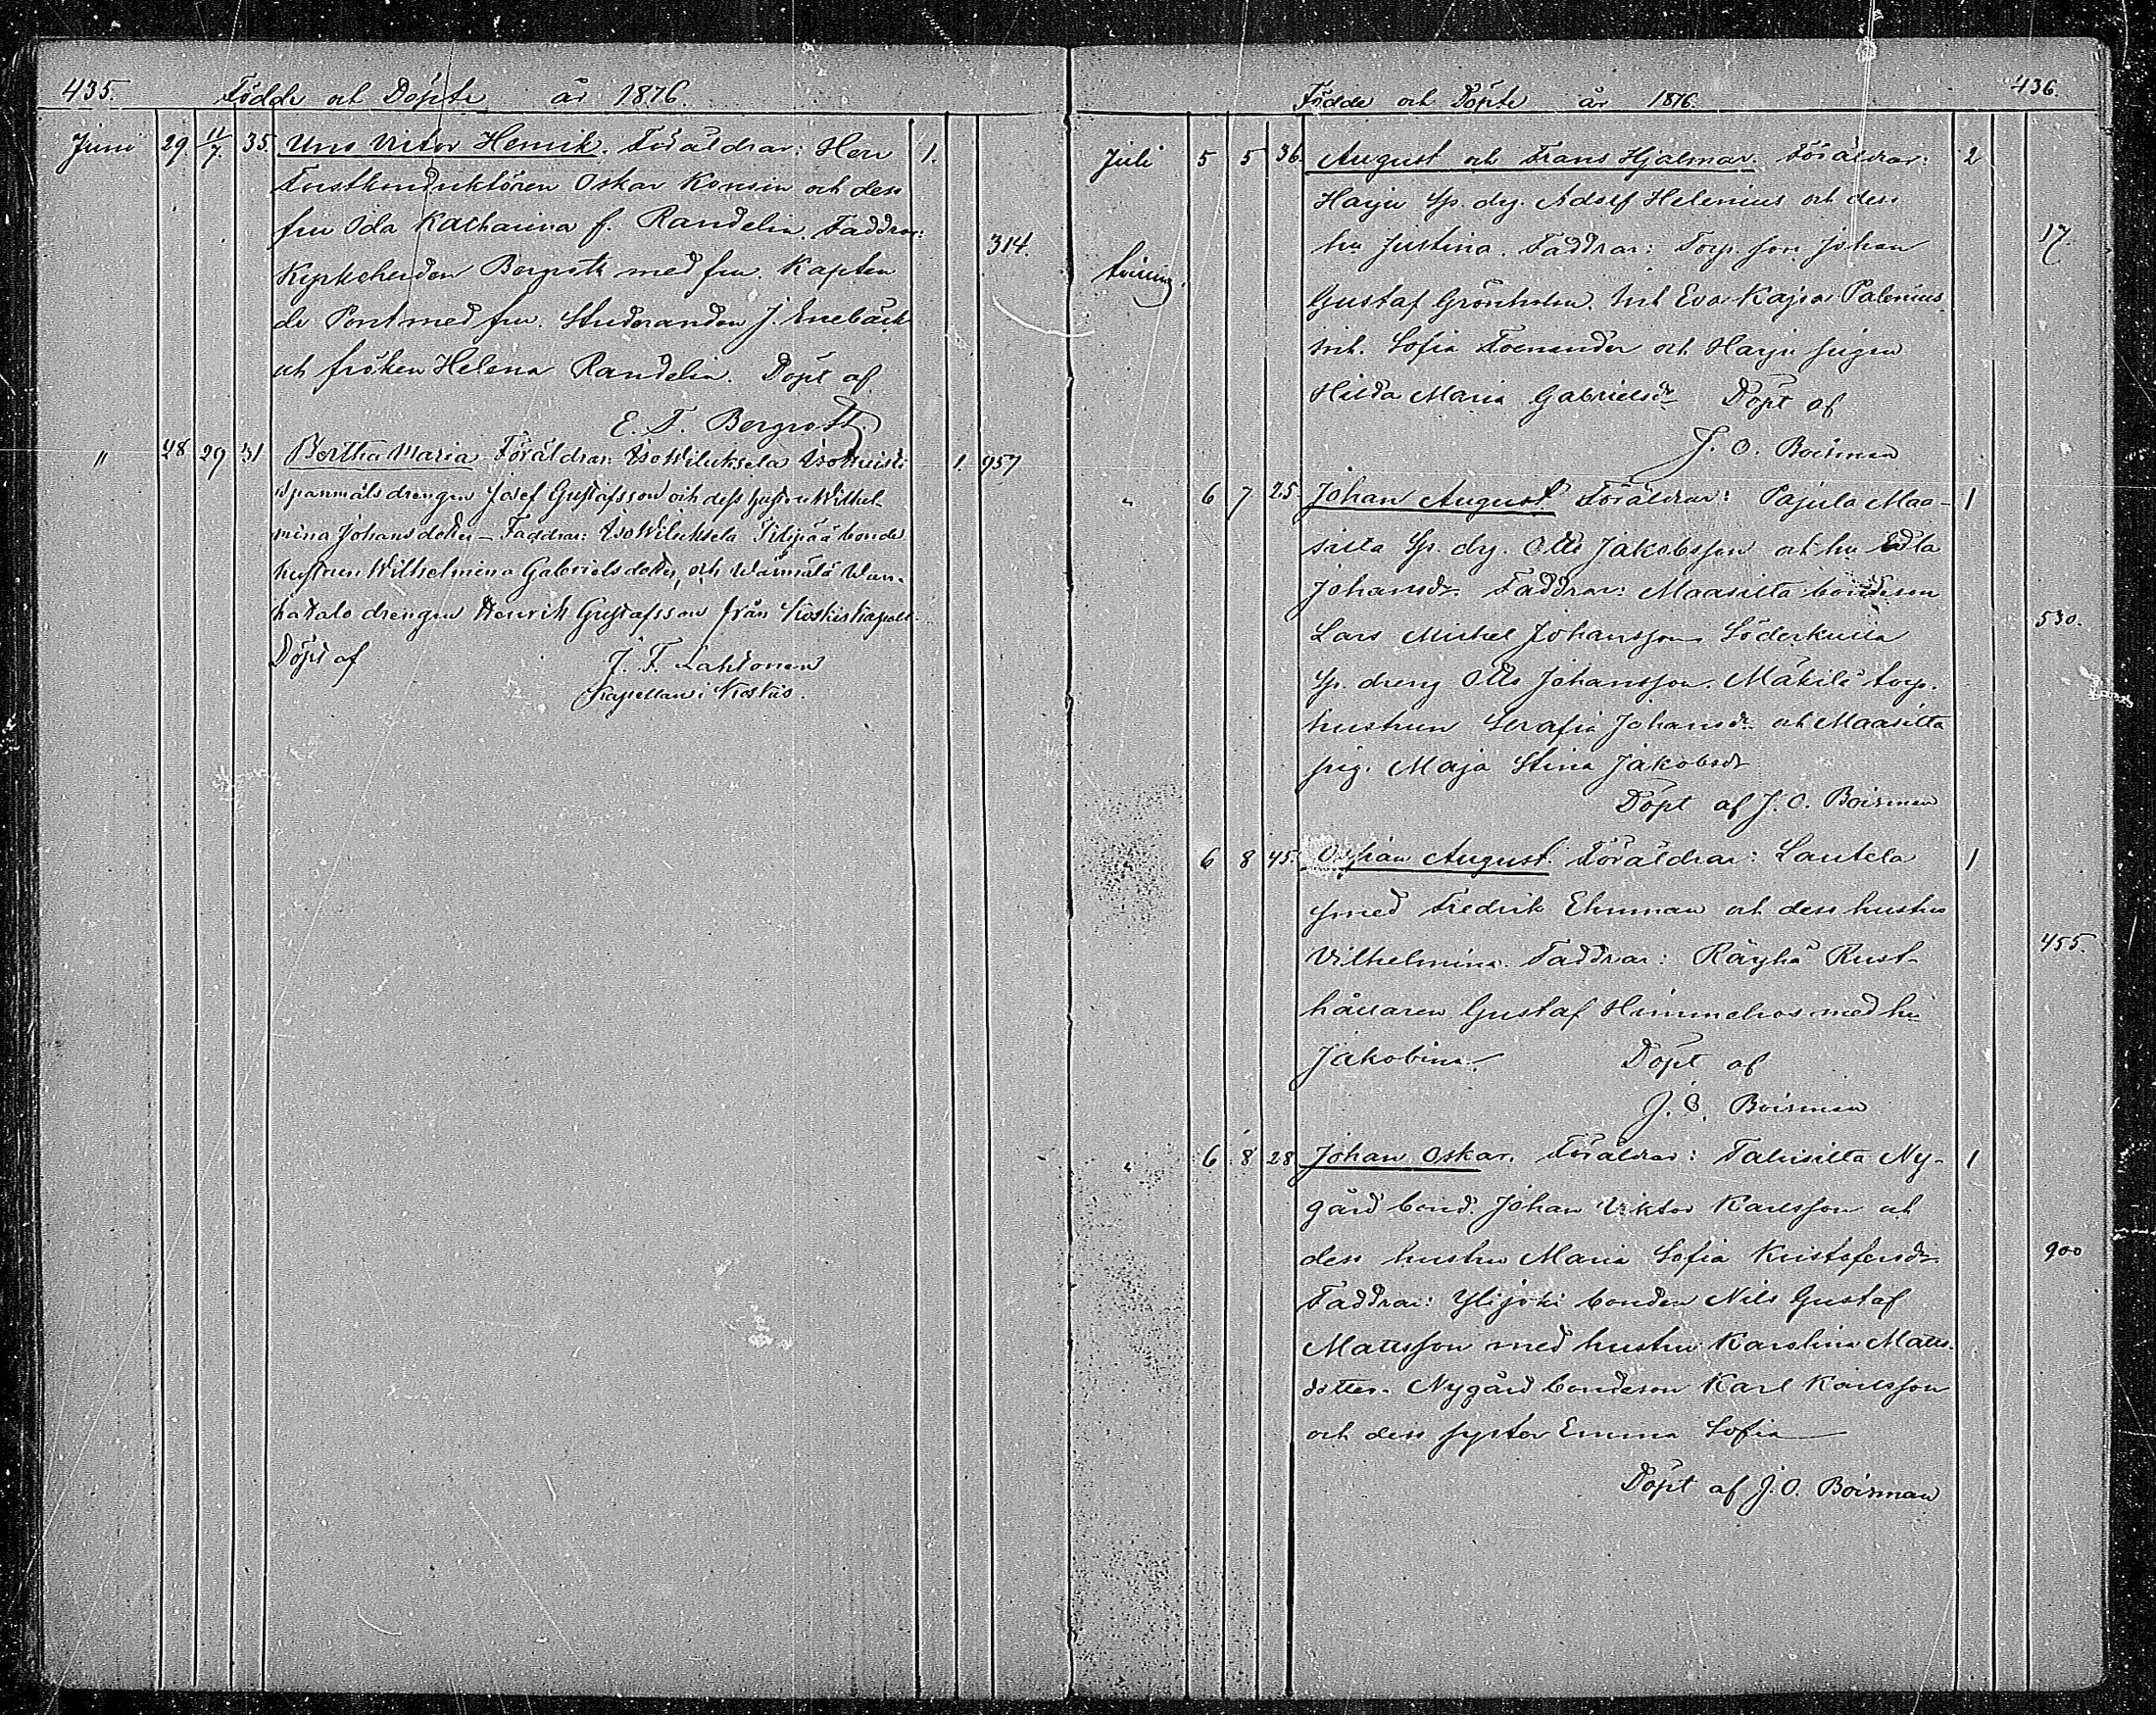 435. Födde och Döpte år 1876.
Juni 29. 11/7. 35. Uno Victor Henrik. Föräldrar: Herr 1.
Forstkonduktören Oskar Konsin och dess
fru Ida Katharina f. Randelin. Faddrar: 314.
Kyrkoherden Bergroth med fru. Kapten
de Pont med fru. Studeranden J. Enebäck
och fröken Helena Randelin. Döpt af
E. F. Bergroth.
" 28 29 31 Bertha Maria Föräldrar: Isowiluksela 1 957
spanmåls drengen Josef Gustafsson och dess hustru Wilhel-
mina Johansdotter – Faddrar: Isowiluksela Filipää bonde
hustrun Wilhelmina Gabrielsdotter, och Wärmälä Wan-
hatalo drengen Henrik Gustafsson från Koskis kapell.
Döpt af J. F. Lahtonen
Kapellan i Koskis.
Födde och Döpte år 1876. 436.
Juli 5 5 36. August och Frans Hjalmar. Föräldrar: 2
Harju sp. drg. Adolf Helenius och dess
hu Justina. Faddrar: Torp. son Johan 17.
tvilling. Gustaf Grönholm. Inh Eva Kajsa Palenius
inh. Sofia Forsander och Harju pigan
Hilda Maria Gabrielsdr Döpt af
J. O. Boisman
" 6 7 25 Johan August. Föräldrar: Pajula Maa- 1
silta Sp. drg. Otto Jakobsson och hu Edla
Johansdr. Faddrar: Maasilta bondeson
Lars Mickel Johansson Söderkulla 530.
Sp. dreng Otto Johansson. Mäkilä torp.
hustrun Serafia Johansdr och Maasilta
pig. Maja Stina Jakobsdr
Döpt af J. O. Boisman
" 6 8 45. August. Föräldrar: Lautela 1
smed Fredrik Ehnman och dess hustru
Vilhelmina. Faddrar: Räyhä Rust- 455.
hållaren Gustaf Himmelros med hu
Jakobina. Döpt af
J. O. Boisman
" 6 8 28 Johan Oskar. Föräldrar: Talusilta Ny- 1
gård bond. Johan Viktor Karlsson och
dess hustru Maria Sofia Kristofersdr 900
Faddrar: Ylijoki bonden Nils Gustaf
Mattsson med hustru Karolina Matts-
dotter. Nygård bondeson Karl Karlsson
och dess syster Emma Sofia
Döpt af J. O. Boisman